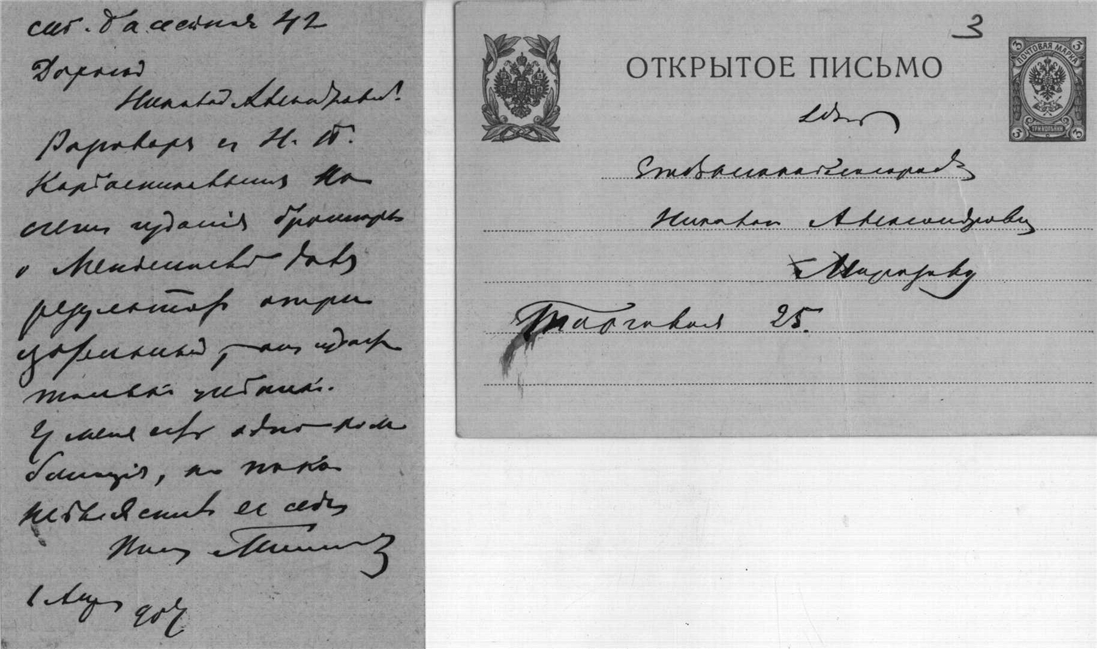 спб. Бассейная 42
Дорогой
Николай Александрович.
Разговоръ съ Н. П.
Карбасниковымъ на
счетъ изданія брошюры
о Менделѣевѣ далъ
результатъ отри
цательный, онъ издаетъ
только учебники.
У меня есть одна ком
бинація, но пока
не выяснилъ ее себѣ
1 Апр 907
3
ОТКРЫТОЕ ПИСЬМО
ПОЧТОВАЯ МАРКА
3 3
ТРИ КОП.
3 3
Здѣсь
Его Высокоблагород
Николаю Александровичу
Морозову
Торговая 25.